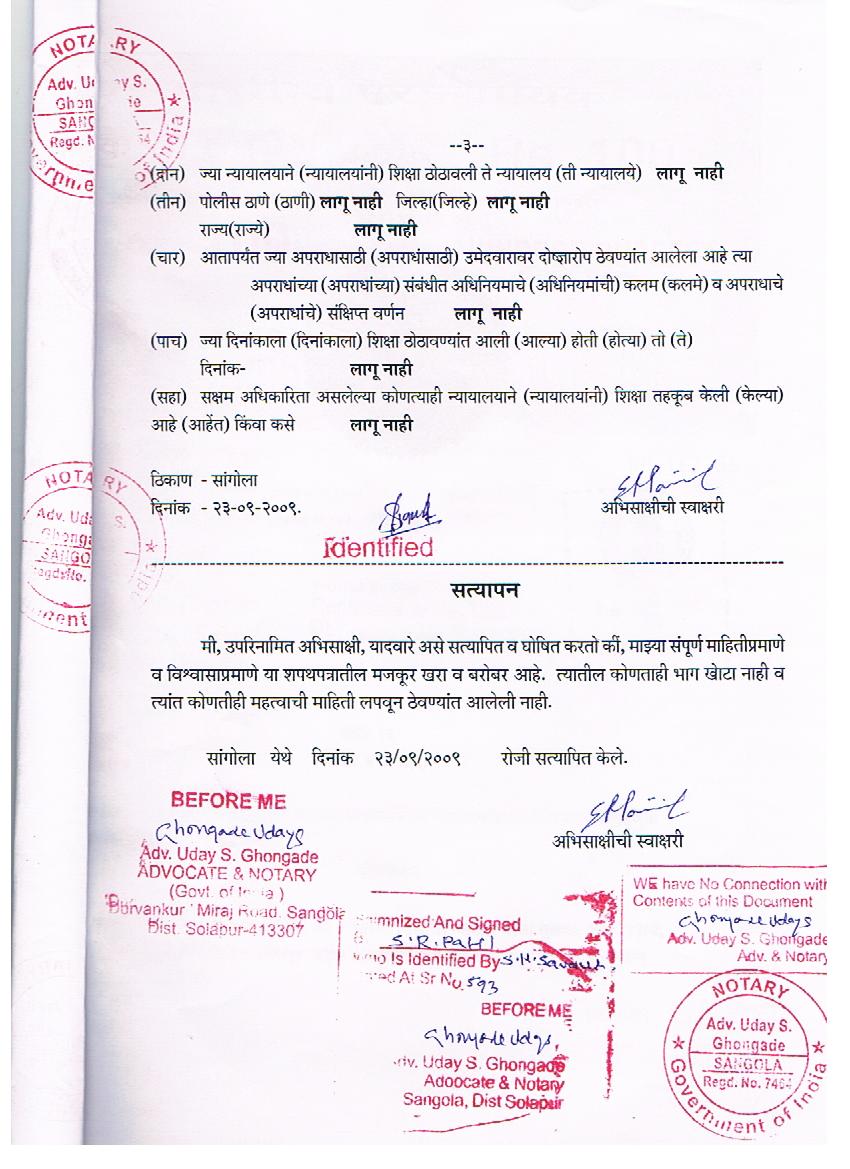 NOTARY
Adv. Uday S.
Ghongade
SANG
Regd. N 64
of India
--३--
(दोन) ज्या न्यायालयाने (न्यायालयांनी) शिक्षा ठोठावली ते न्यायालय (ती न्यायालये) लागू नाही
(तीन) पोलीस ठाणे (ठाणी) लागू नाही जिल्हा(जिल्हे) लागू नाही
राज्य(राज्ये) लागू नाही
(चार) आतापर्यंत ज्या अपराधासाठी (अपराधांसाठी) उमेदवारावर दोष्षारोप ठेवण्यांत आलेला आहे त्या
अपराधांच्या (अपराधांच्या) संबंधीत अधिनियमाचे (अधिनियमांची) कलम (कलमे) व अपराधाचे
(अपराधांचे) संक्षिप्त वर्णन लागू नाही
(पाच) ज्या दिनांकाला (दिनांकाला) शिक्षा ठोठावण्यांत आली (आल्या) होती (होत्या) तो (ते)
दिनांक- लागू नाही
(सहा) सक्षम अधिकारिता असलेल्या कोणत्याही न्यायालयाने (न्यायालयांनी) शिक्षा तहकूब केली (केल्या)
आहे (आहेंत) किंवा कसे लागू नाही
ठिकाण - सांगोला
दिनांक - २३-०९-२००९.
अभिसाक्षीची स्वाक्षरी
Identified
NOTARY
Adv. Uda S.
Ghonga
SANGO
सत्यापन
मी, उपरिनामित अभिसाक्षी, यादवारे असे सत्यापित व घोषित करतो कीं, माझ्या संपूर्ण माहितीप्रमाणे
व विश्वासाप्रमाणे या शपथपत्रातील मजकूर खरा व बरोबर आहे. त्यातील कोणताही भाग खोटा नाही व
त्यांत कोणतीही महत्वाची माहिती लपवून ठेवण्यांत आलेली नाही.
सांगोला येथे दिनांक २३/०९/२००९ रोजी सत्यापित केले.
BEFORE ME
Ghongade Udays
Adv. Uday S. Ghongade
ADVOCATE & NOTARY
(Govt. of India)
'Purvankur' Miraj Road. Sangola
Dist. Solapur-413307
अभिसाक्षीची स्वाक्षरी
WE have No Connection with
Contents of this Document
Ghongade Udays
Adv. Uday S. Ghongade
Adv. & Notary
emnized And Signed
S.R. Patil
Who Is Identified By S.H. Sawant
At Sr No. 593
BEFORE ME
Ghongade Udays,
Adv. Uday S. Ghongade
Adoocate & Notary
Sangola, Dist Solapur
NOTARY
Adv. Uday S.
Ghongade
SANGOLA
Regd. No. 7464
Government of India